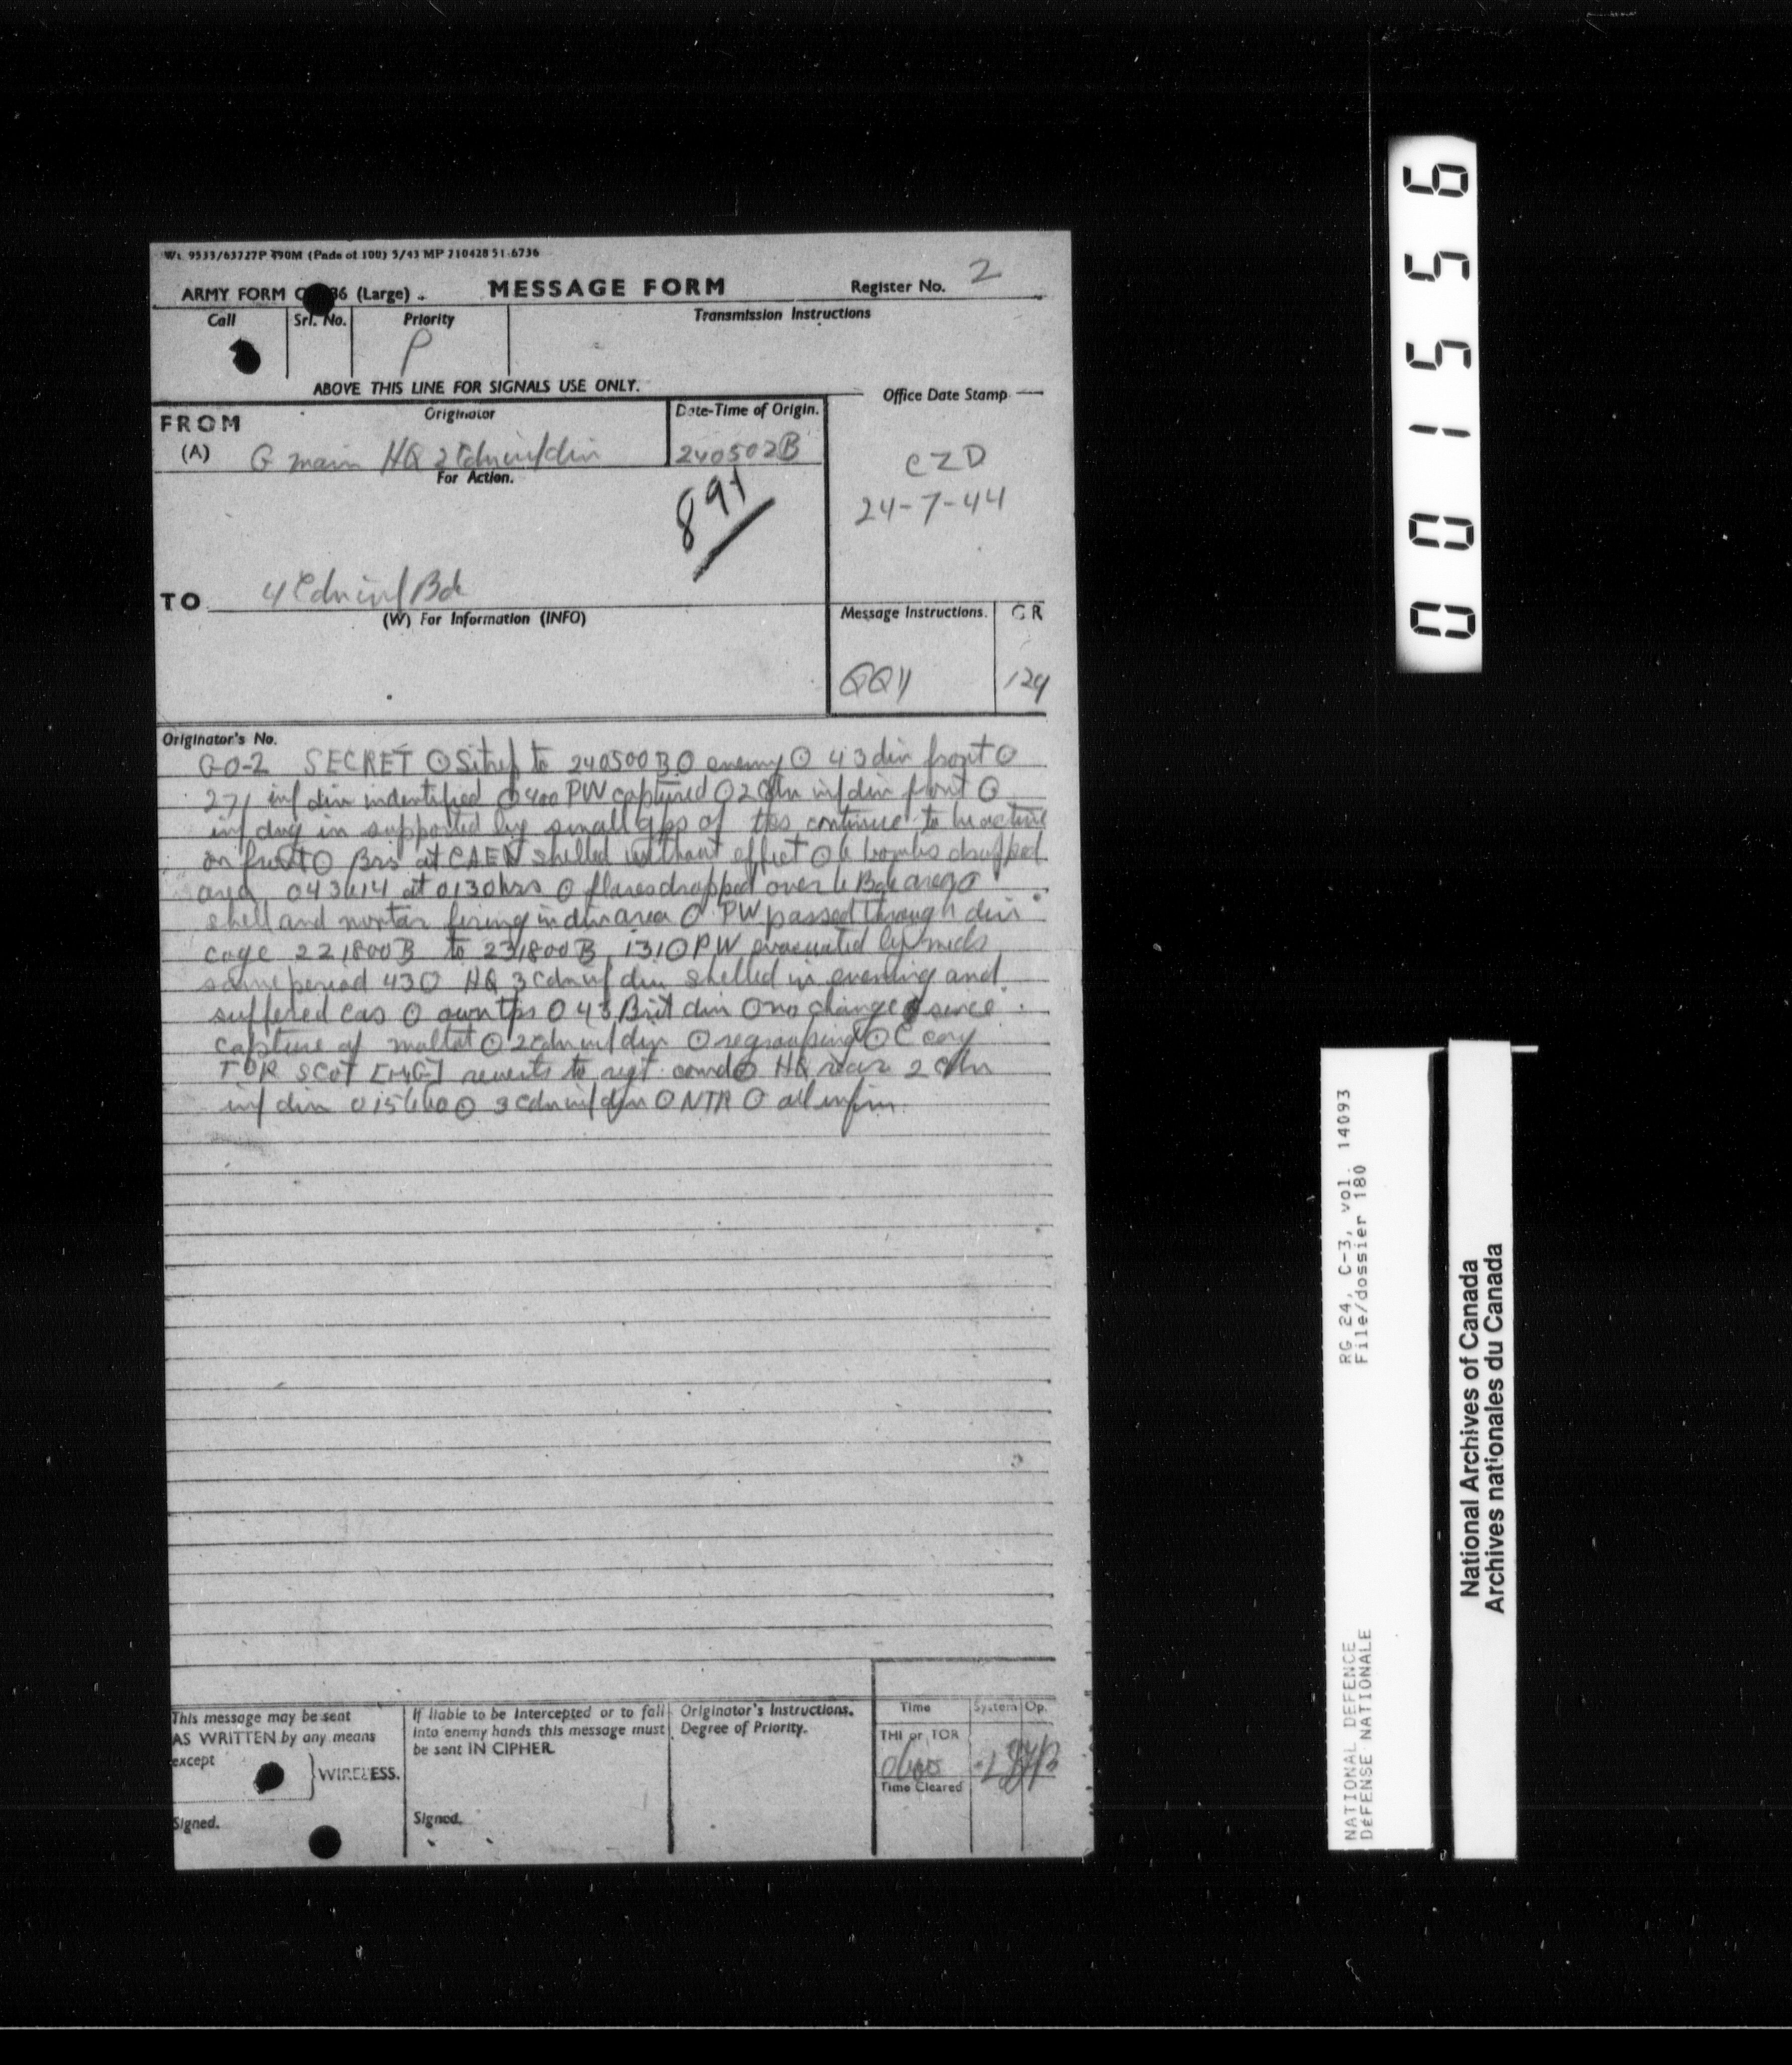 Wt. 9533/63727P 490M (Pads of 100) 5/43 MP 710428 51-6736
ARMY FORM 36 (Large)
MESSAGE FORM
Register No. 2
Call
Srl. No.
Priority
Transmission Instructions
P
ABOVE THIS LINE FOR SIGNALS USE ONLY.
FROM
(A)
Originator
Date-Time of Origin.
Office Date Stamp
G main HQ 2 Cdn inf div
240502B
CZD
24-7-44
For Action.
891
TO
4 Cdn inf Bde
(W) For Information (INFO)
Message Instructions.
GR
QQY
124
Originator's No.
GO-2 SECRET ⊙ Sitrep to 240500B ⊙ enemy ⊙ 43 div front ⊙
271 inf div indentified ⊙ 400 PW captured ⊙ 2 Cdn inf div front ⊙
inf dug in supported by small gps of tks continue to be active
on front ⊙ Brs at CAEN shelled without effect ⊙ 6 bombs dropped
area 043614 at 0130 hrs ⊙ flares dropped over 6 Bde area ⊙
shell and mortar firing in div area ⊙ PW passed through div
cage 221800B to 231800B 131 ⊙ PW evacuated by meds
same period 43 ⊙ HQ 3 Cdn inf div shelled in evening and
suffered cas ⊙ own tps ⊙ 43 Brit div ⊙ no change since
capture of maltot ⊙ 2 cdn inf div ⊙ regrouping ⊙ C coy
TOR SCOT [MG] reverts to regt comd ⊙ HQ rear 2 Cdn
inf div 015660 ⊙ 3 cdn inf div ⊙ NTR ⊙ all infm
This message may be sent
AS WRITTEN by any means
except
WIRELESS.
Signed.
If liable to be intercepted or to fall
into enemy hands this message must
be sent IN CIPHER
Signed.
Originator's Instructions.
Degree of Priority.
Time
System
Op.
THI or TOR
Time Cleared
001556
RG 24, C-3, vol. 14093
File/dossier 180
NATIONAL DEFENCE
DéFENSE NATIONALE
National Archives of Canada
Archives nationales du Canada